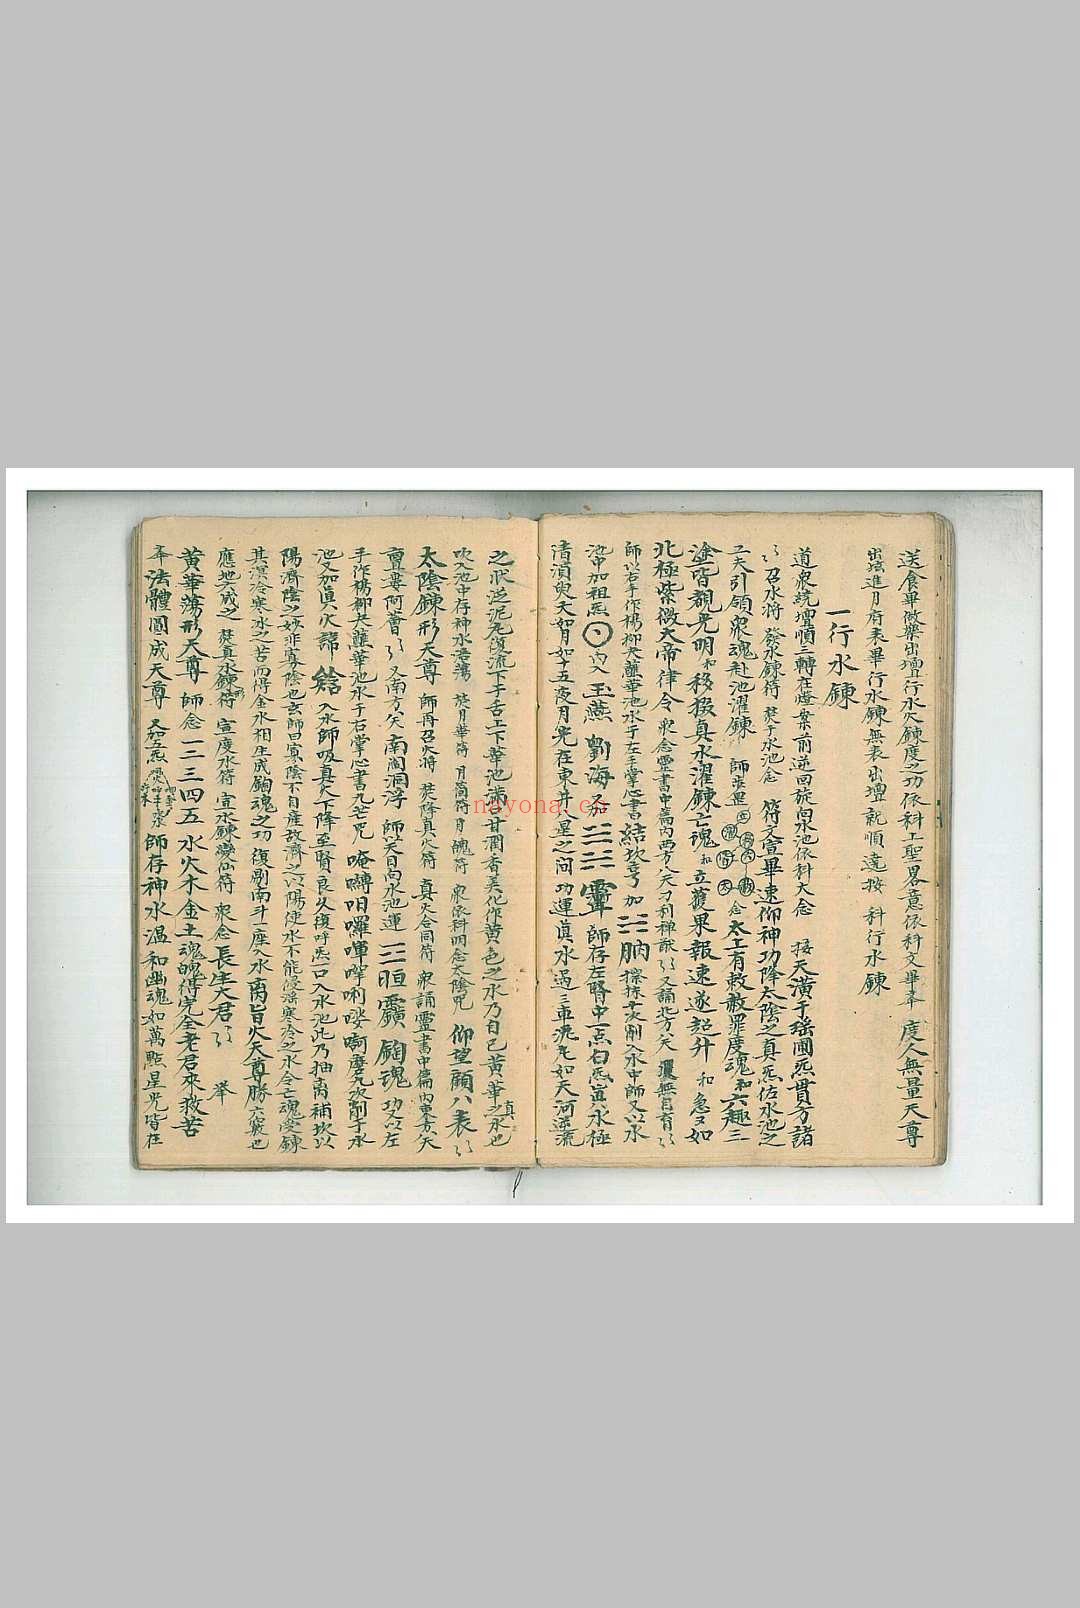 送食畢做樂出壇行水火鍊度之功依科上聖畧意依科文畢奉 度人無量天尊
出壇進月府表畢行水鍊無表出壇就順遶按科行水鍊
一行水鍊
道眾統壇順三轉在燈案前逆回旋向水池依科大念 接天潢于瑤圃炁貫方諸
召水將 發水鍊符 焚于水池念 符文宣畢速仰神功降太陰之真炁佐水池之
工夫引領眾魂赴池濯鍊 師步罡 念 太上有敕赦罪度魂和六趣三
途皆覩光明和移掇真水濯鍊亡魂和立獲果報速遂超升 和 急急如
北極紫微大帝律令 眾念靈書中篇內西方八天刀利禪猷 又誦北方天 玃無自育
師以右手作楊柳央蘸華池水于左手掌心書結坎亨加 朒 擦抹手次剔入水中師又以水
池中加祖炁 內入 玉燕 劉海 師存左腎中一点白炁直永極
清湏臾天如月如十五夜月光在東井八星之间功運真水過三車洗丸如天河逆流
之狀從泥丸復流下于舌上下華池滿甘潤香美化作黃色之水乃自己黃華之真水也
吹入池中存神水浩蕩 焚月華符 月筒符 月魄符 眾依科四念太陰咒 仰望顧八表
太陰鍊形天尊 師再召火將 焚降真火符 真火合同符 眾誦靈書中篇內東方天
亶婁阿薈 又南方天 南閻洞浮 師以天目向水池運 三晅靈 鍧魂 功又以左
手作楊柳央蘸華池水于右掌心書九芒咒 唵囀呬囉㖷嚀唎㗋啊 磨九次剔于水
池又加真火諱 熻 入水師吸真火下降至賢良久復呼炁一口入水池此乃抽离補坎以
陽濟陰之妙非專陰也玄師曰寡陰不自産故濟之以陽使水不能浸淫寒冷之水令亡魂受鍊
其溟冷寒水之苦而得金水相生成鍧魂之功 復剔南斗一座入水 丙旨火天尊勝 六寶也
應地六成之 焚真水鍊形符 宣度水符 宣水鍊變仙符 眾念長生大君 举
黃華蕩形天尊 師念 一二三四五 水火木金土魂魄得完全老君來救苦
奉 法體圓成天尊 又加五炁 師存神水溫和幽魂如萬點星光皆在
nayona.cn